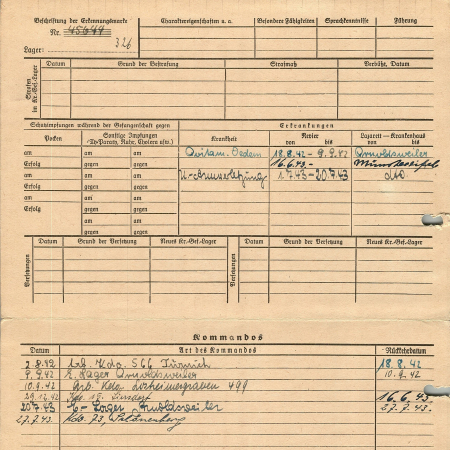 Beschriftung der Erkennungsmarke Charaktereigenschaften u. a. Besondere Fähigkeiten Sprachkenntnisse Führung
Nr. 45644
Lager: 326
Strafen im Kr.-Gef.-Lager
Datum Grund der Bestrafung Strafmaß Verbüßt, Datum
Schutzimpfungen während der Gefangenschaft gegen Erkrankungen
Pocken Sonstige Impfungen (Ty-Paraty, Ruhr, Cholera usw.) Krankheit Revier von bis Lazarett – Krankenhaus von bis
am am gegen Avitam. Oedem 18.8.42 – 9.9.42 Arnoldsweiler
Erfolg am gegen 16.6.43.– Münstereifel
am am gegen 1.7.43 – 20.7.43 dto.
Erfolg am gegen
am am gegen
Erfolg am gegen
am gegen
Versetzungen
Datum Grund der Versetzung Neues Kr.-Gef.-Lager Datum Grund der Versetzung Neues Kr.-Gef.-Lager
Kommandos
Datum Art des Kommandos Rückkehrdatum
2.8.42 Arb. Kdo. 566 Türnich 18.8.42
9.9.42 E. Lager Arnoldsweiler 10.9.42
10.9.42 Arb. Kdo. 499
29.12.42 16.6.43
20.7.43 E-Lager Arnoldsweiler 27.7.43.
27.7.43. Kdo. 73,